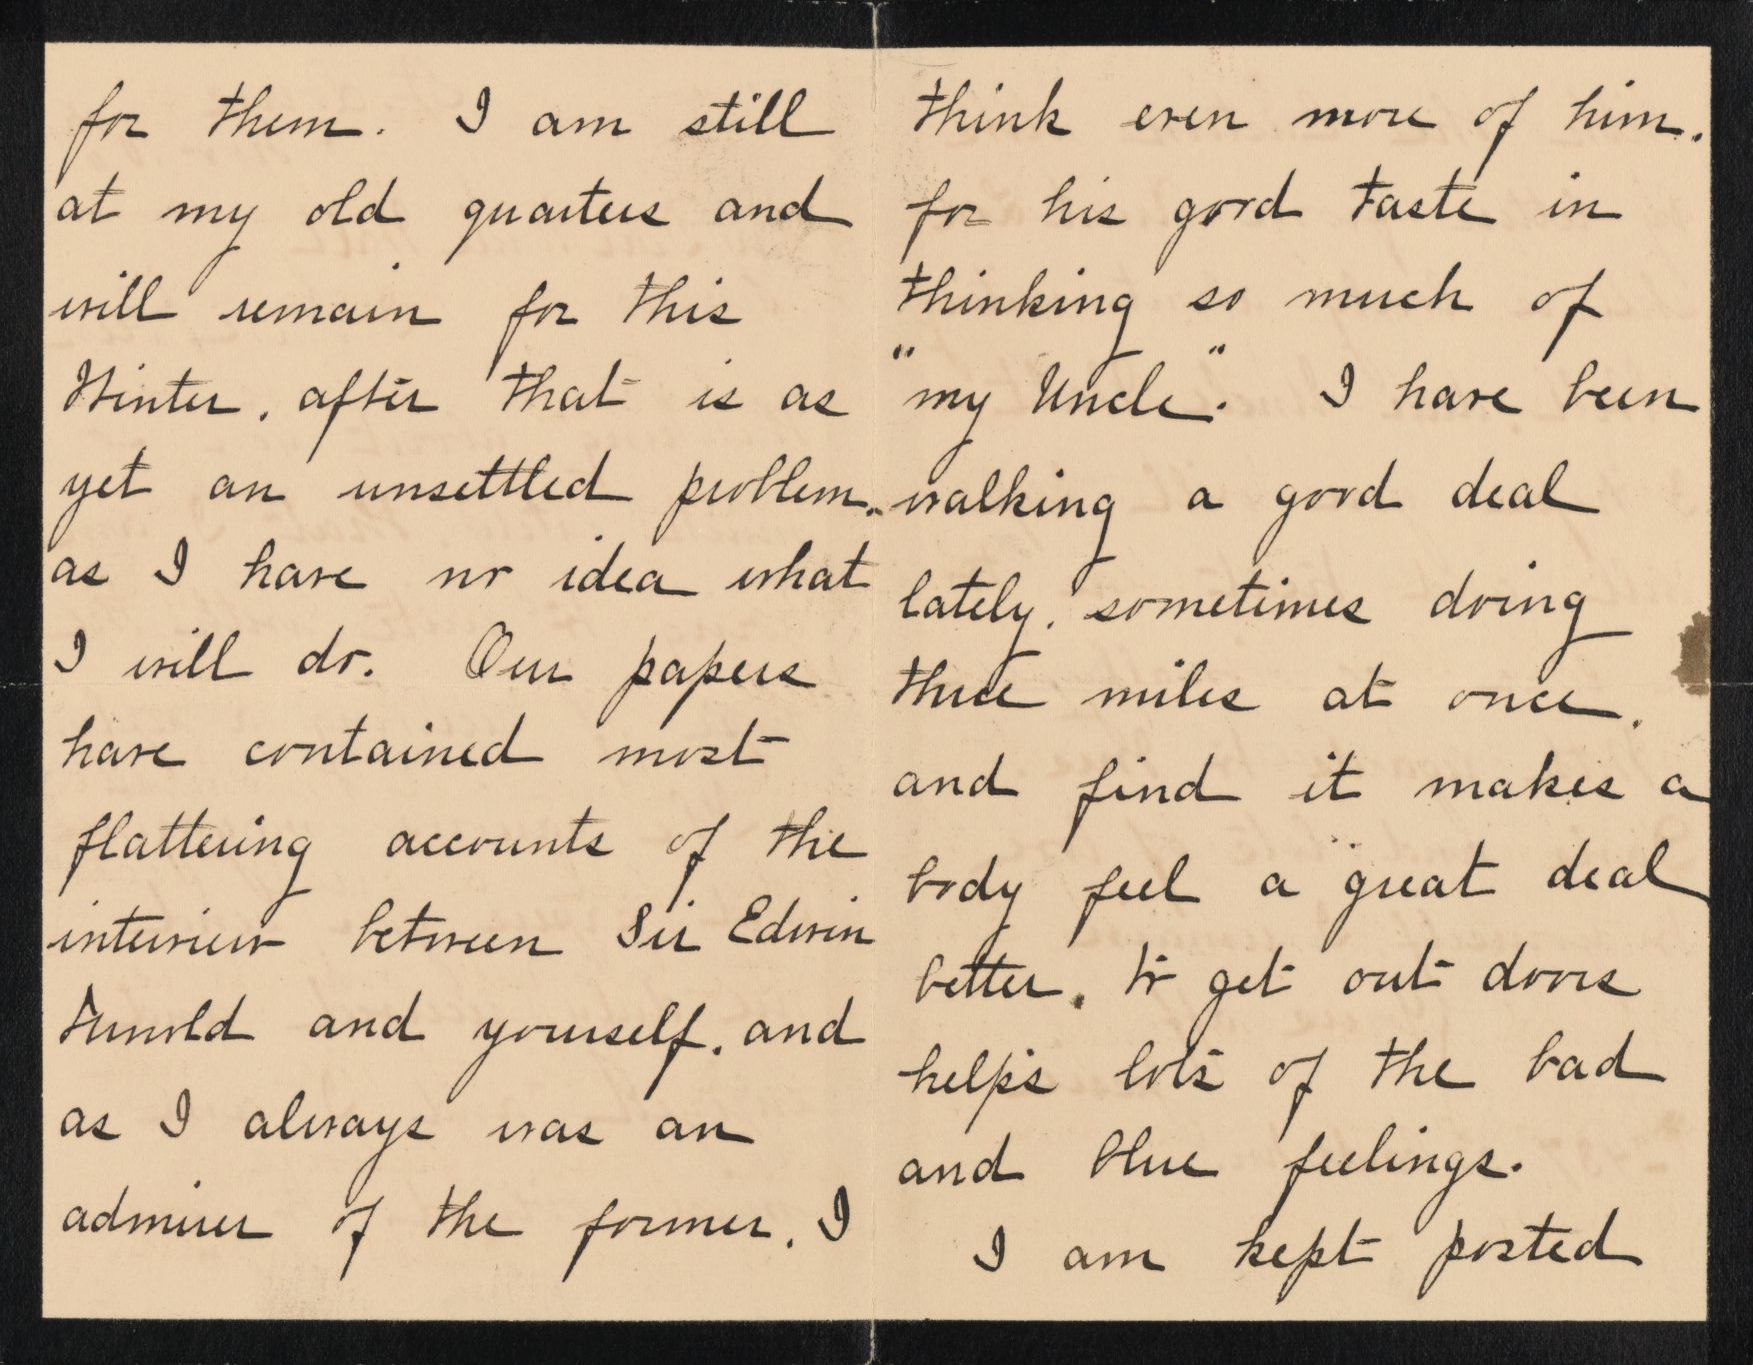 for them. I am still
at my old quarters and
will remain for this
Winter, after that is as
yet an unsettled problem,
as I have no idea what
I will do. Our papers
have contained most
flattering accounts of the
interview between Sir Edwin
Arnold and yourself, and
as I always was an
admirer of the former, I
think even more of him,
for his good taste in
thinking so much of
"my Uncle". I have been
walking a good deal
lately, sometimes doing
three miles at once,
and find it makes a
body feel a great deal
better, to get out doors
helps lots of the bad
and blue feelings.
I am kept posted